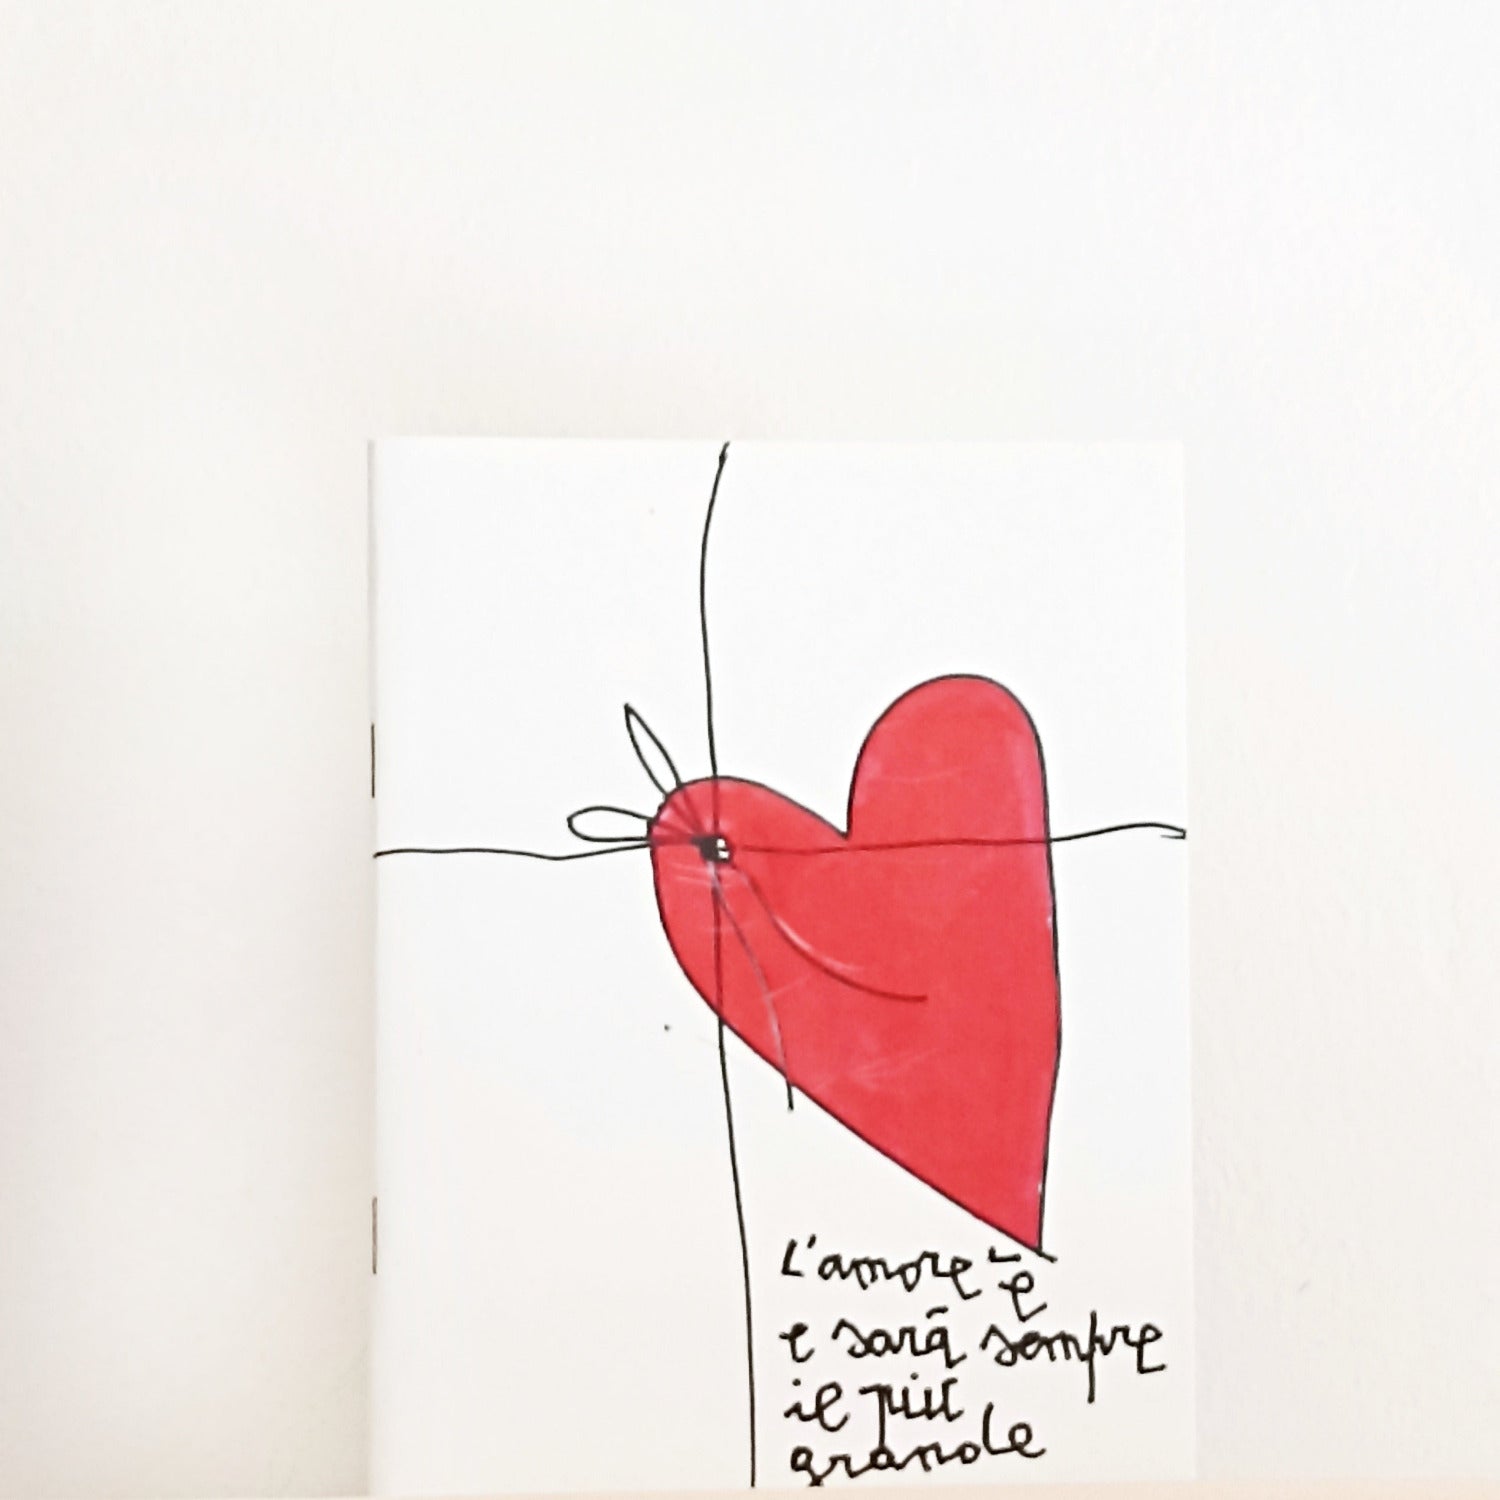 L'amore è
e sarà sempre
il più
grande